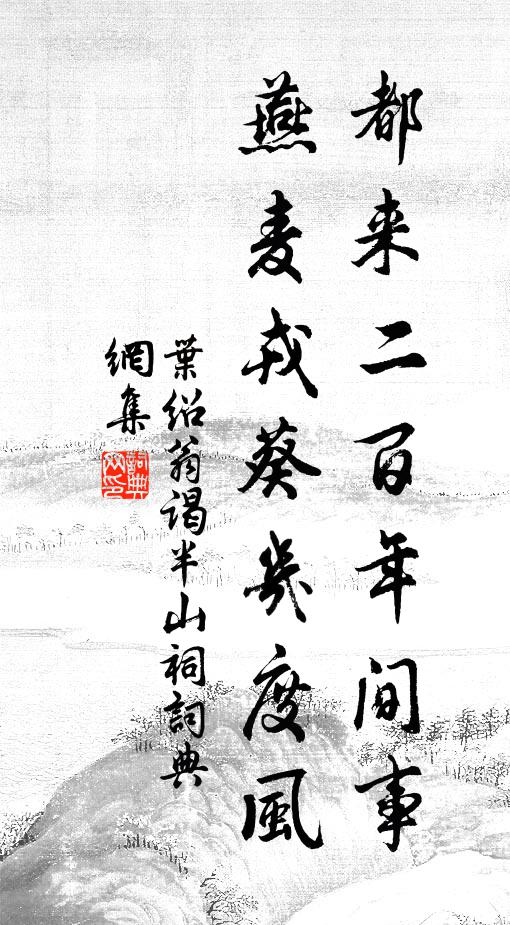 都来二百年间事
燕麦戎葵几度風
葉紹翁谒半山祠詞典
網集
詞典
網印